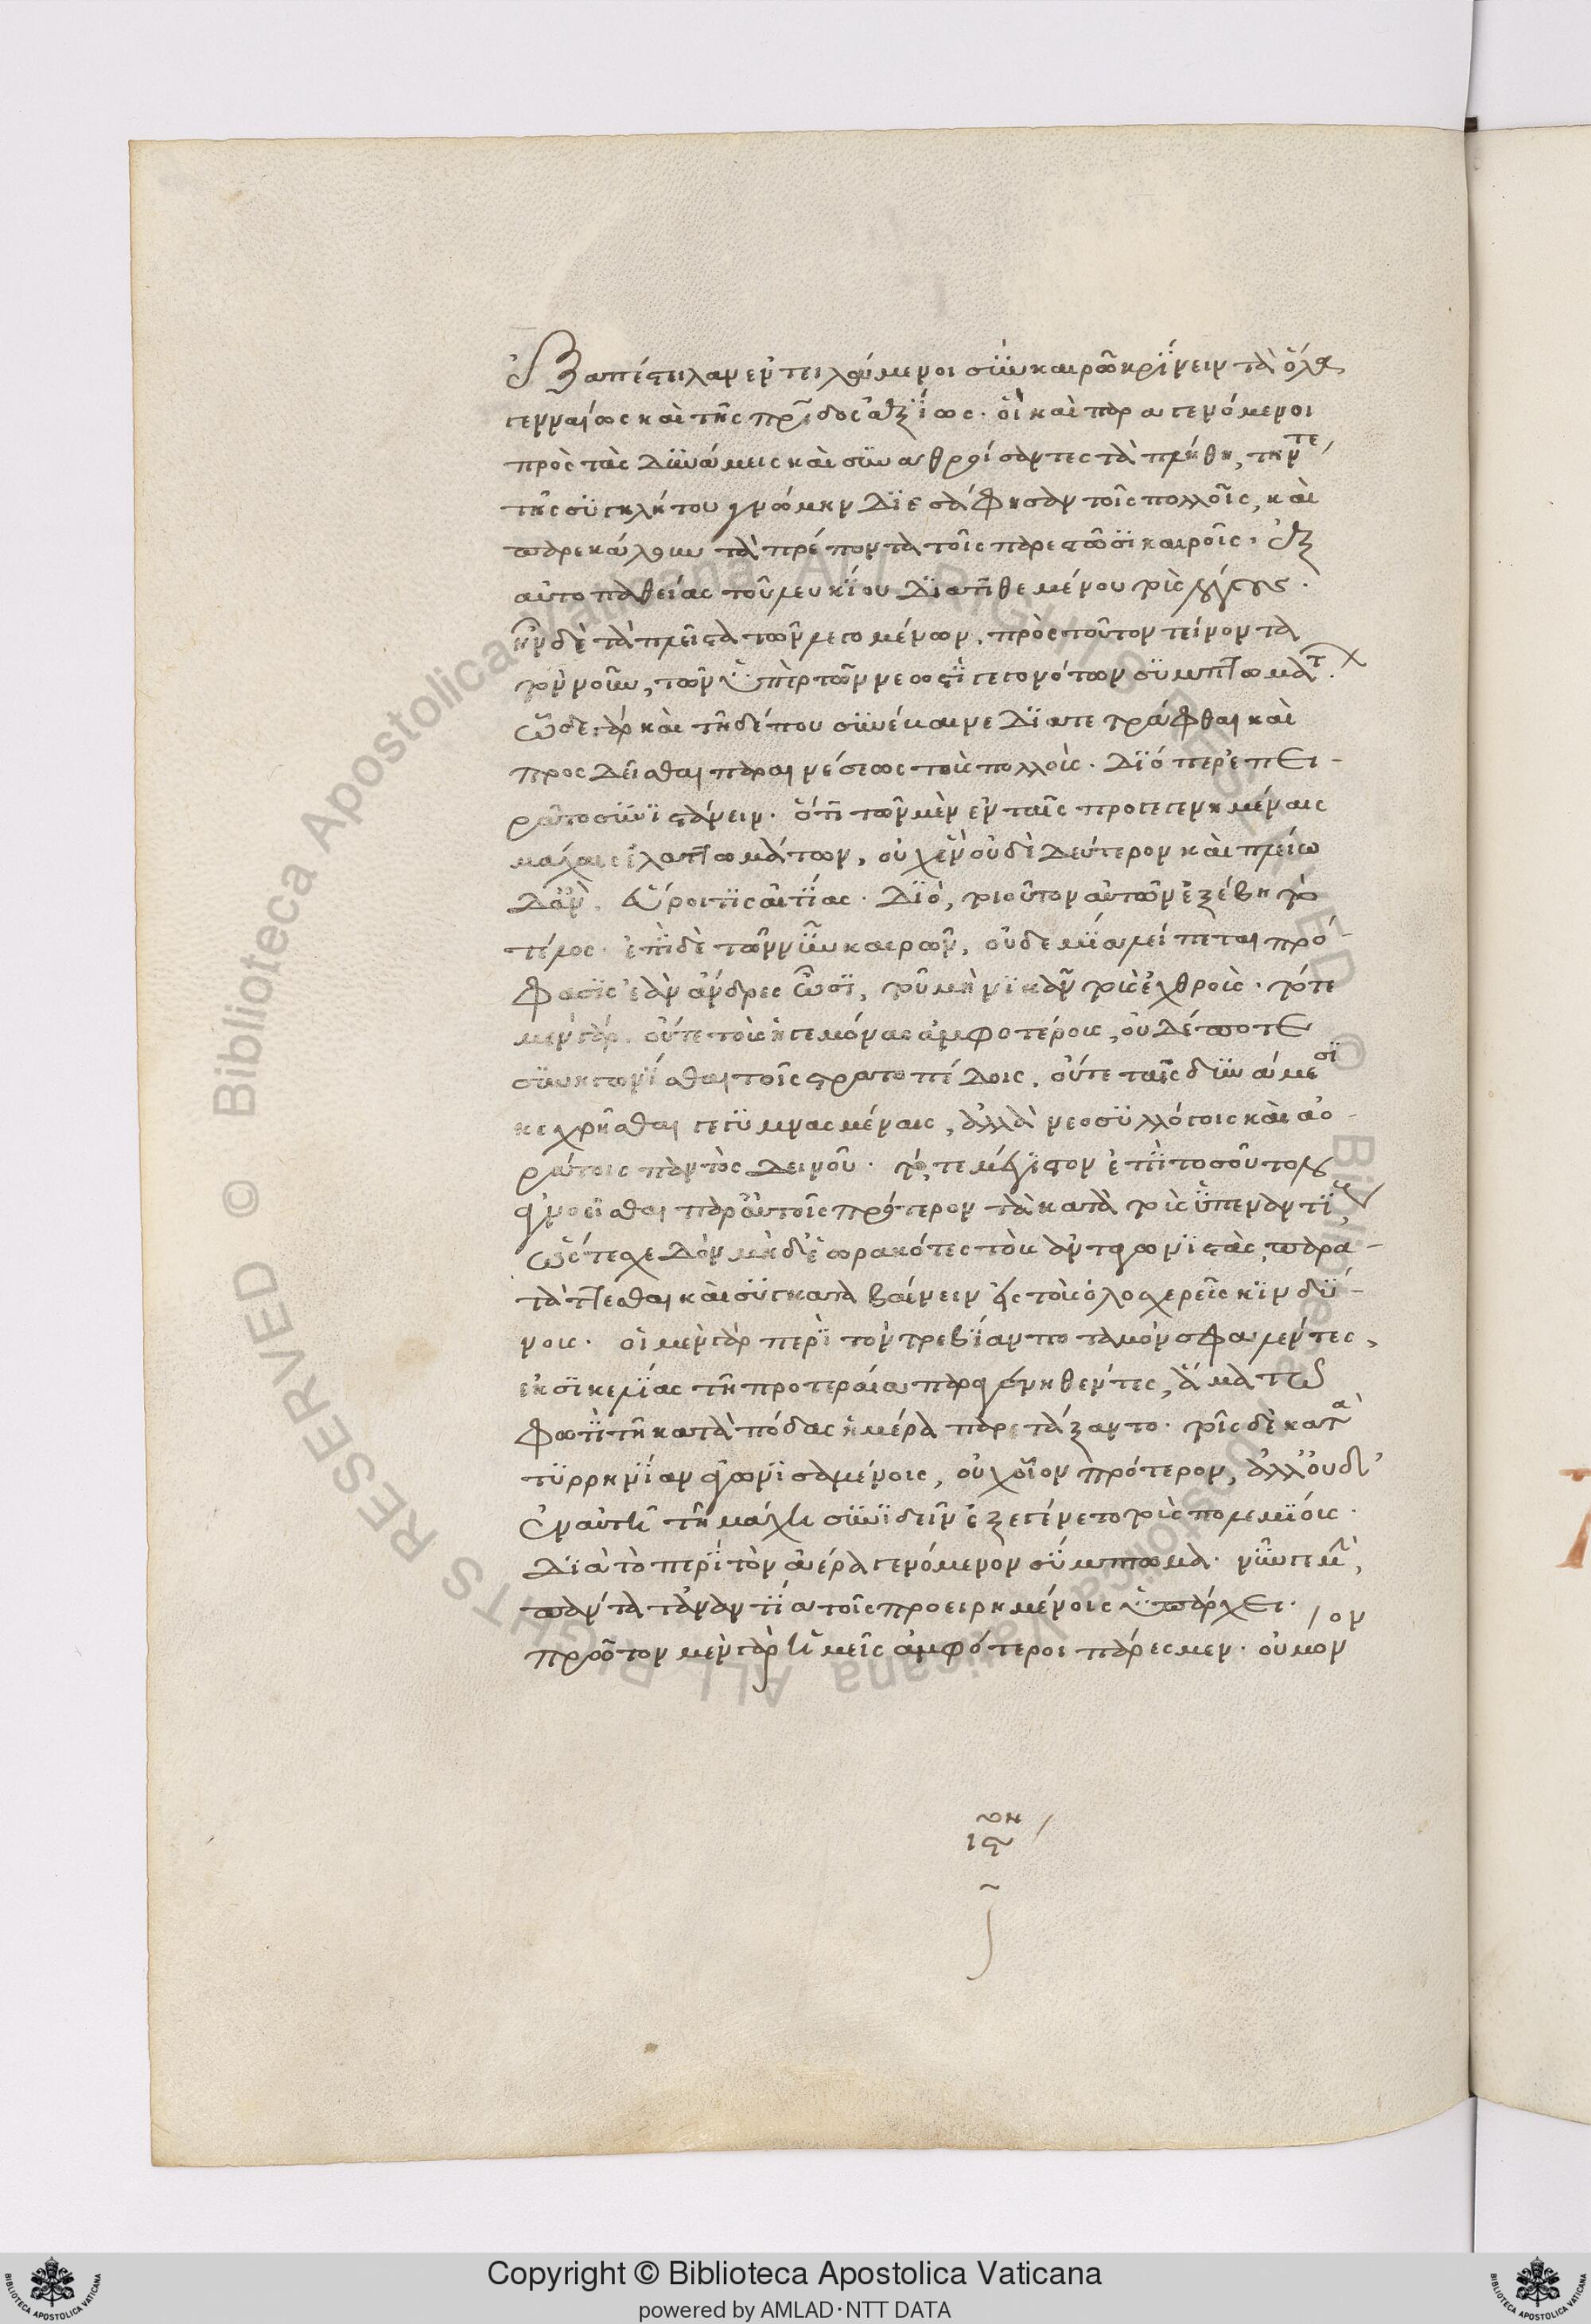 ἐξαπέστειλαν ἐντειλάμενοι σὺν καιρῶ κρίνειν τὰ ὅλα
γενναίως καὶ τῆς πρῖδος ἀξίως· οἳ καὶ παραγενόμενοι
πρὸς τὰς δυνάμεις καὶ συναθροίσαντες τὰ πλήθη, τήν τε
τῆς συγκλήτου γνώμην διεσάφησαν τοῖς πολλοῖς, καὶ
παρεκάλουν τὰ πρέποντα τοῖς παρεστῶσι καιροῖς· ἐξ
αὐτοπαθείας τοῦ λευκίου διατιθεμένου τοὺς λόγους·
ἦν δὲ τὰ πλεῖστα τῶν λεγομένων, πρὸς τοῦτον τείνοντα
τὸν νοῦν, τῶν ὑπὲρ τῶν νεωστὶ γεγονότων συμπτωμάτ·
ὧδε γὰρ καὶ τῆδέ που συνέβαινε διατετράφθαι καὶ
προσδεῖσθαι παραινέσεως τοὺς πολλούς· διόπερ ἐπει-
ρᾶτο συνιστάνειν· ὅτι τῶν μὲν ἐν ταῖς προγεγενημέναις
μάχαις ἐλαττωμάτων, οὐχ ἓν οὐδὲ δεύτερον καὶ πλείω
δἂν εὕροι τις αἰτίας· διὸ, τοιοῦτον αὐτῶν ἐξέβη τὸ
τέλος· ἐπὶ δὲ τῶν νῦν καιρῶν, οὐδεμία λείπεται πρό-
φασις ἐὰν ἄνδρες ὦσι, τοῦ μὴ νικᾶν τοὺς ἐχθρούς· τότε
μὲν γὰρ οὔτε τοὺς ἡγεμόνας ἀμφοτέρους, οὐδέποτε
συνηγωνίσθαι τοῖς στρατοπέδοις, οὔτε ταῖς δυνάμεσι
κεχρῆσθαι γεγυμνασμέναις, ἀλλὰ νεοσυλλόγοις καὶ ἀο-
ράτοις παντὸς δεινοῦ· τό, τε μέγιστον ἐπὶ τοσοῦτον
ἀγνοεῖσθαι παρ' αὐτοῖς πρότερον τὰ κατὰ τοὺς ὑπεναντίους
ὥστε σχεδὸν μηδ' ἑωρακότες τοὺς ἀνταγωνιστὰς, παρα-
τάττεσθαι καὶ συγκαταβαίνειν εἰς τοὺς ὁλοσχερεῖς κινδύ-
νους· οἱ μὲν γὰρ περὶ τὸν τρεβίαν ποταμὸν σφαλέντες,
ἐκ σικελίας τῆ προτεραία παραγενηθέντες, ἅμα τῶ
φωτὶ τῆ κατὰ πόδας ἡμέρα παρετάξαντο· τοῖς δὲ κατὰ
τυρρηνίαν ἀγωνισαμένοις, οὐχ οἷον πρότερον, ἀλλ' οὐδ'
ἐν αὐτῆ τῆ μάχη συνιδεῖν ἐξεγένετο τοὺς πολεμίους·
διὰ τὸ περὶ τὸν ἀέρα γενόμενον σύμπτωμα· νῦν γε μὴν,
πάντα τἀναντία τοῖς προειρημένοις ὑπάρχει·
πρῶτον μὲν γὰρ ἡμεῖς ἀμφότεροι πάρεσμεν· οὐ μόνον
Copyright © Biblioteca Apostolica Vaticana
powered by AMLAD·NTT DATA